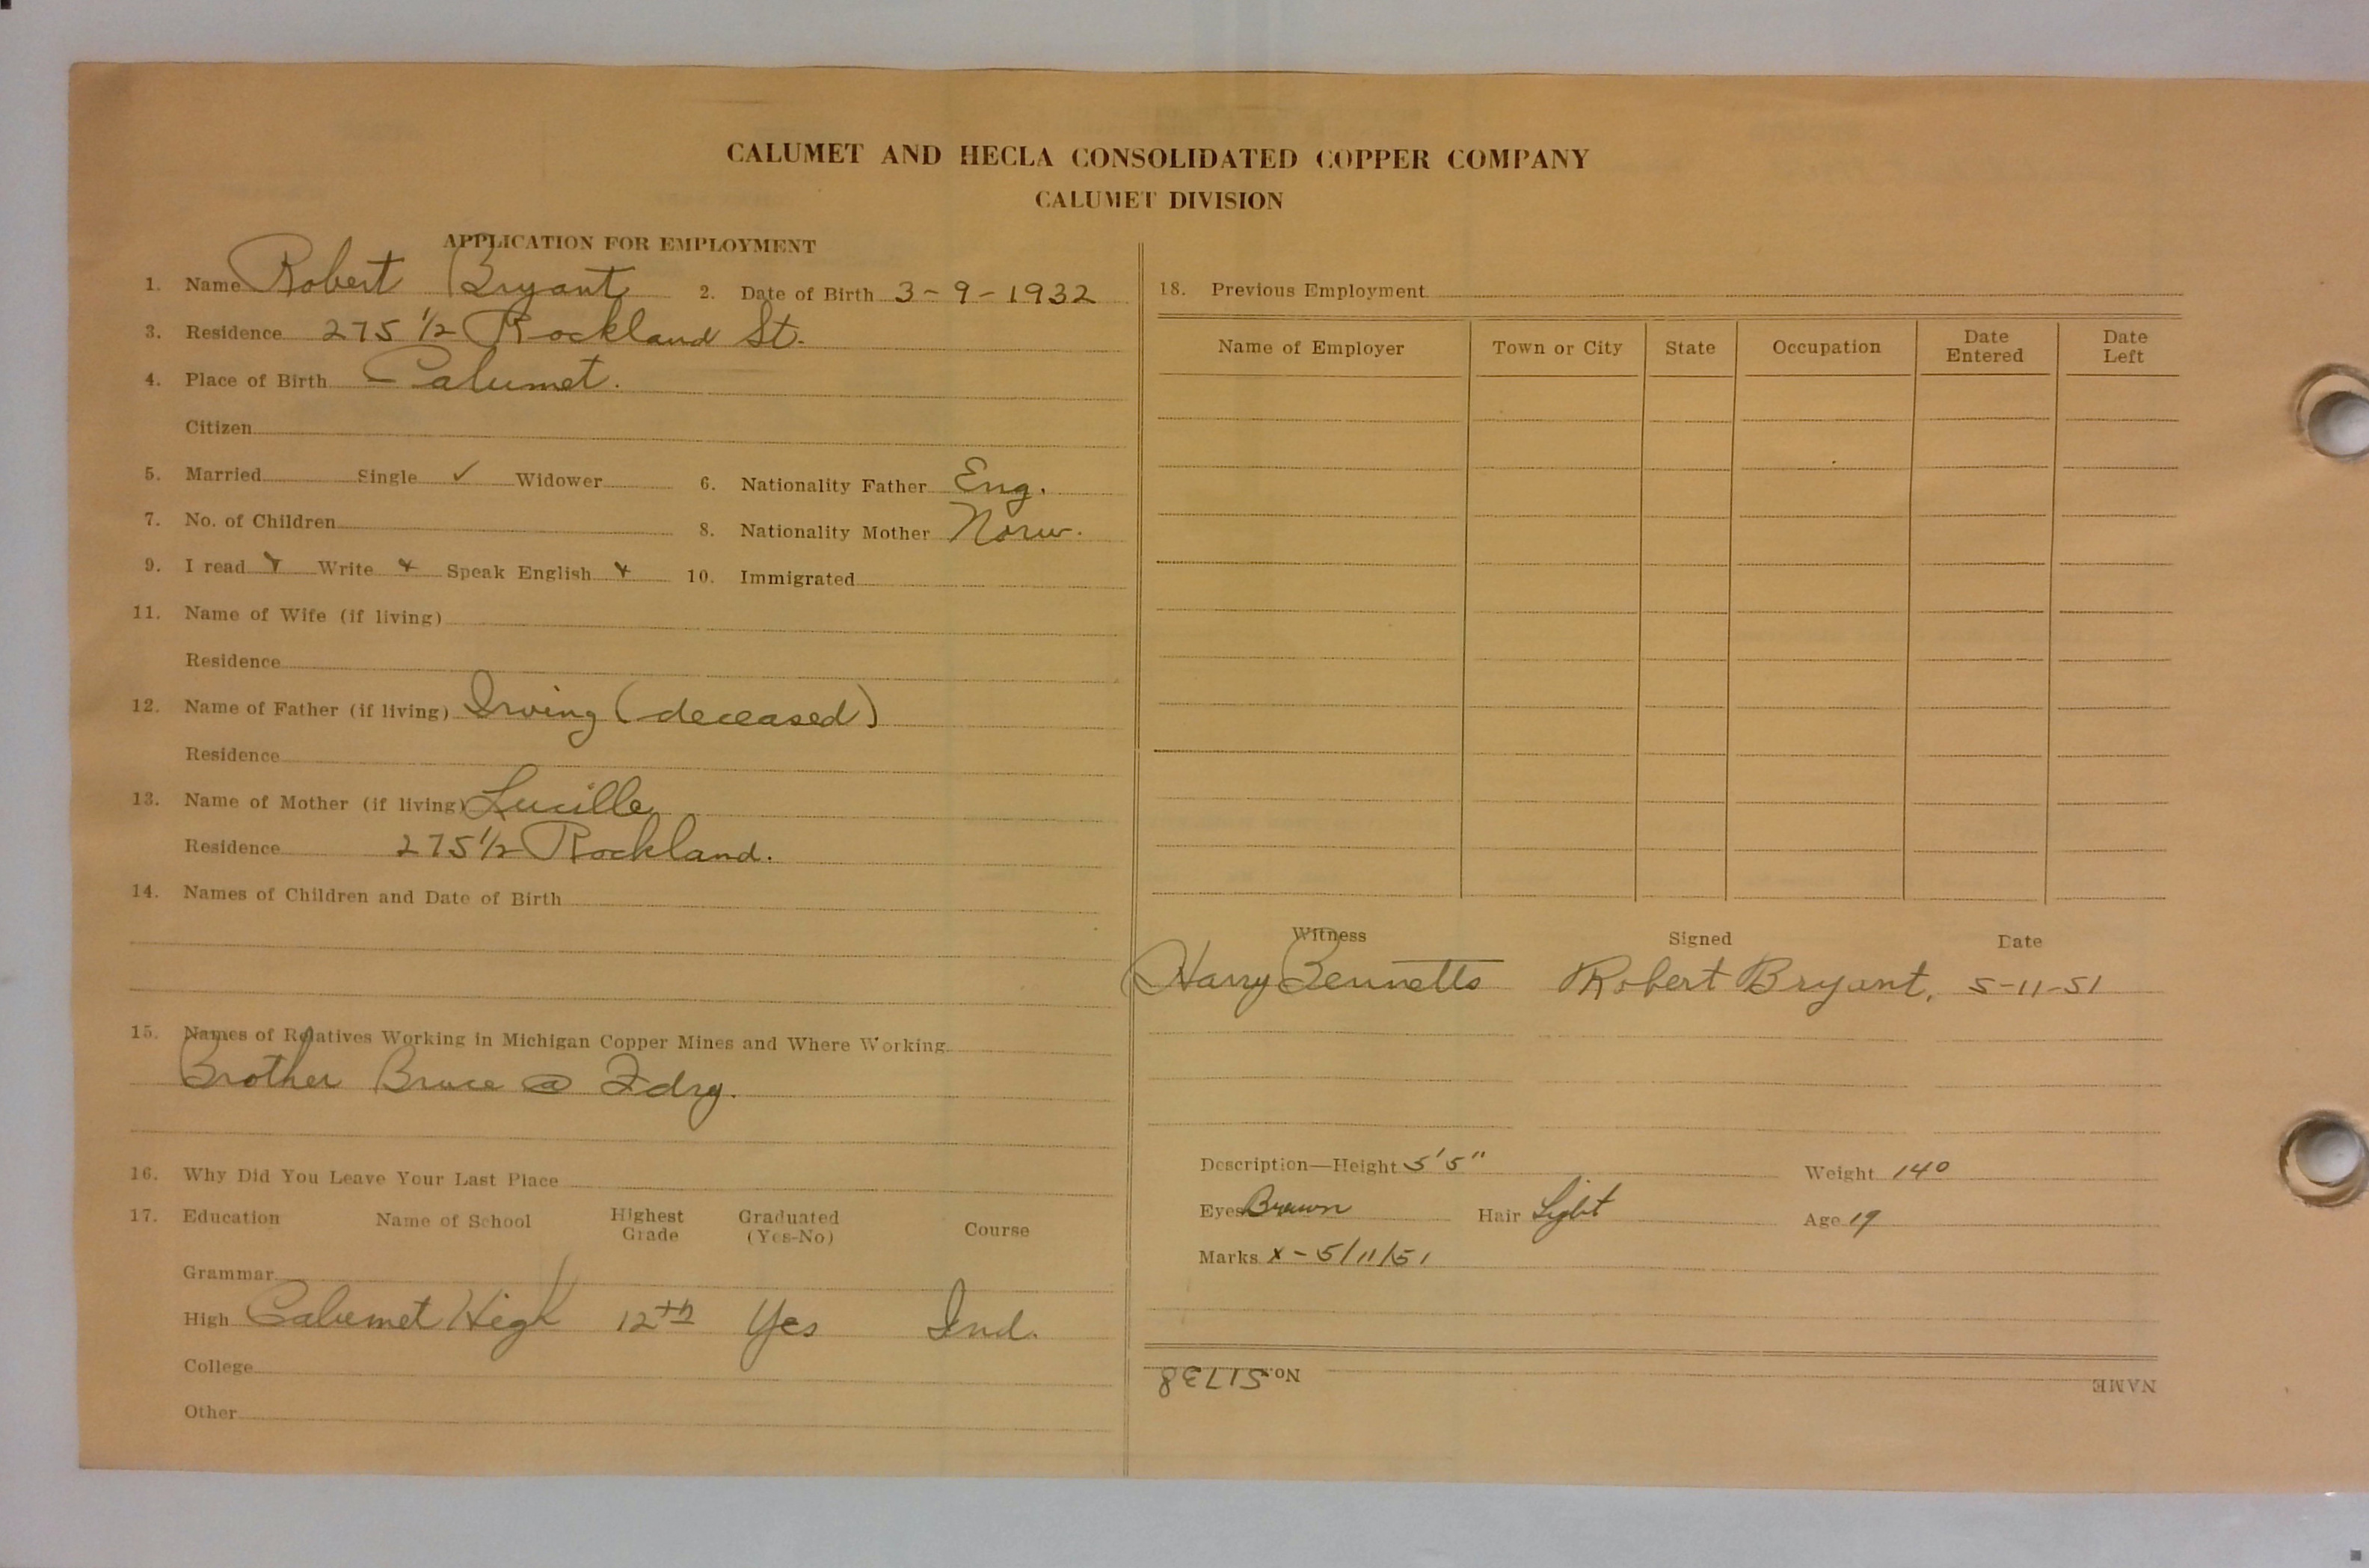 CALUMET AND HECLA CONSOLIDATED COPPER COMPANY
CALUMET DIVISION
APPLICATION FOR EMPLOYMENT
1. Name Robert Bryant 2. Date of Birth 3-9-1932
3. Residence 275 1/2 Rockland St.
4. Place of Birth Calumet.
Citizen
5. Married Single ✓ Widower 6. Nationality Father Eng.
7. No. of Children 8. Nationality Mother Norw.
9. I read x Write x Speak English x 10. Immigrated
11. Name of Wife (if living)
Residence
12. Name of Father (if living) Irving (deceased)
Residence
13. Name of Mother (if living) Lucille
Residence 275 1/2 Rockland.
14. Names of Children and Date of Birth
15. Names of Relatives Working in Michigan Copper Mines and Where Working
Brother Bruce @ Fdry.
16. Why Did You Leave Your Last Place
17. Education Name of School Highest Grade Graduated (Yes-No) Course
Grammar
High Calumet High 12th Yes Ind.
College
Other
18. Previous Employment
Name of Employer Town or City State Occupation Date Entered Date Left
Witness Signed Date
Harry Bennetts Robert Bryant, 5-11-51
Description—Height 5'5" Weight 140
Eyes Brown Hair Light Age 19
Marks x - 5/11/51
NAME No. 51738